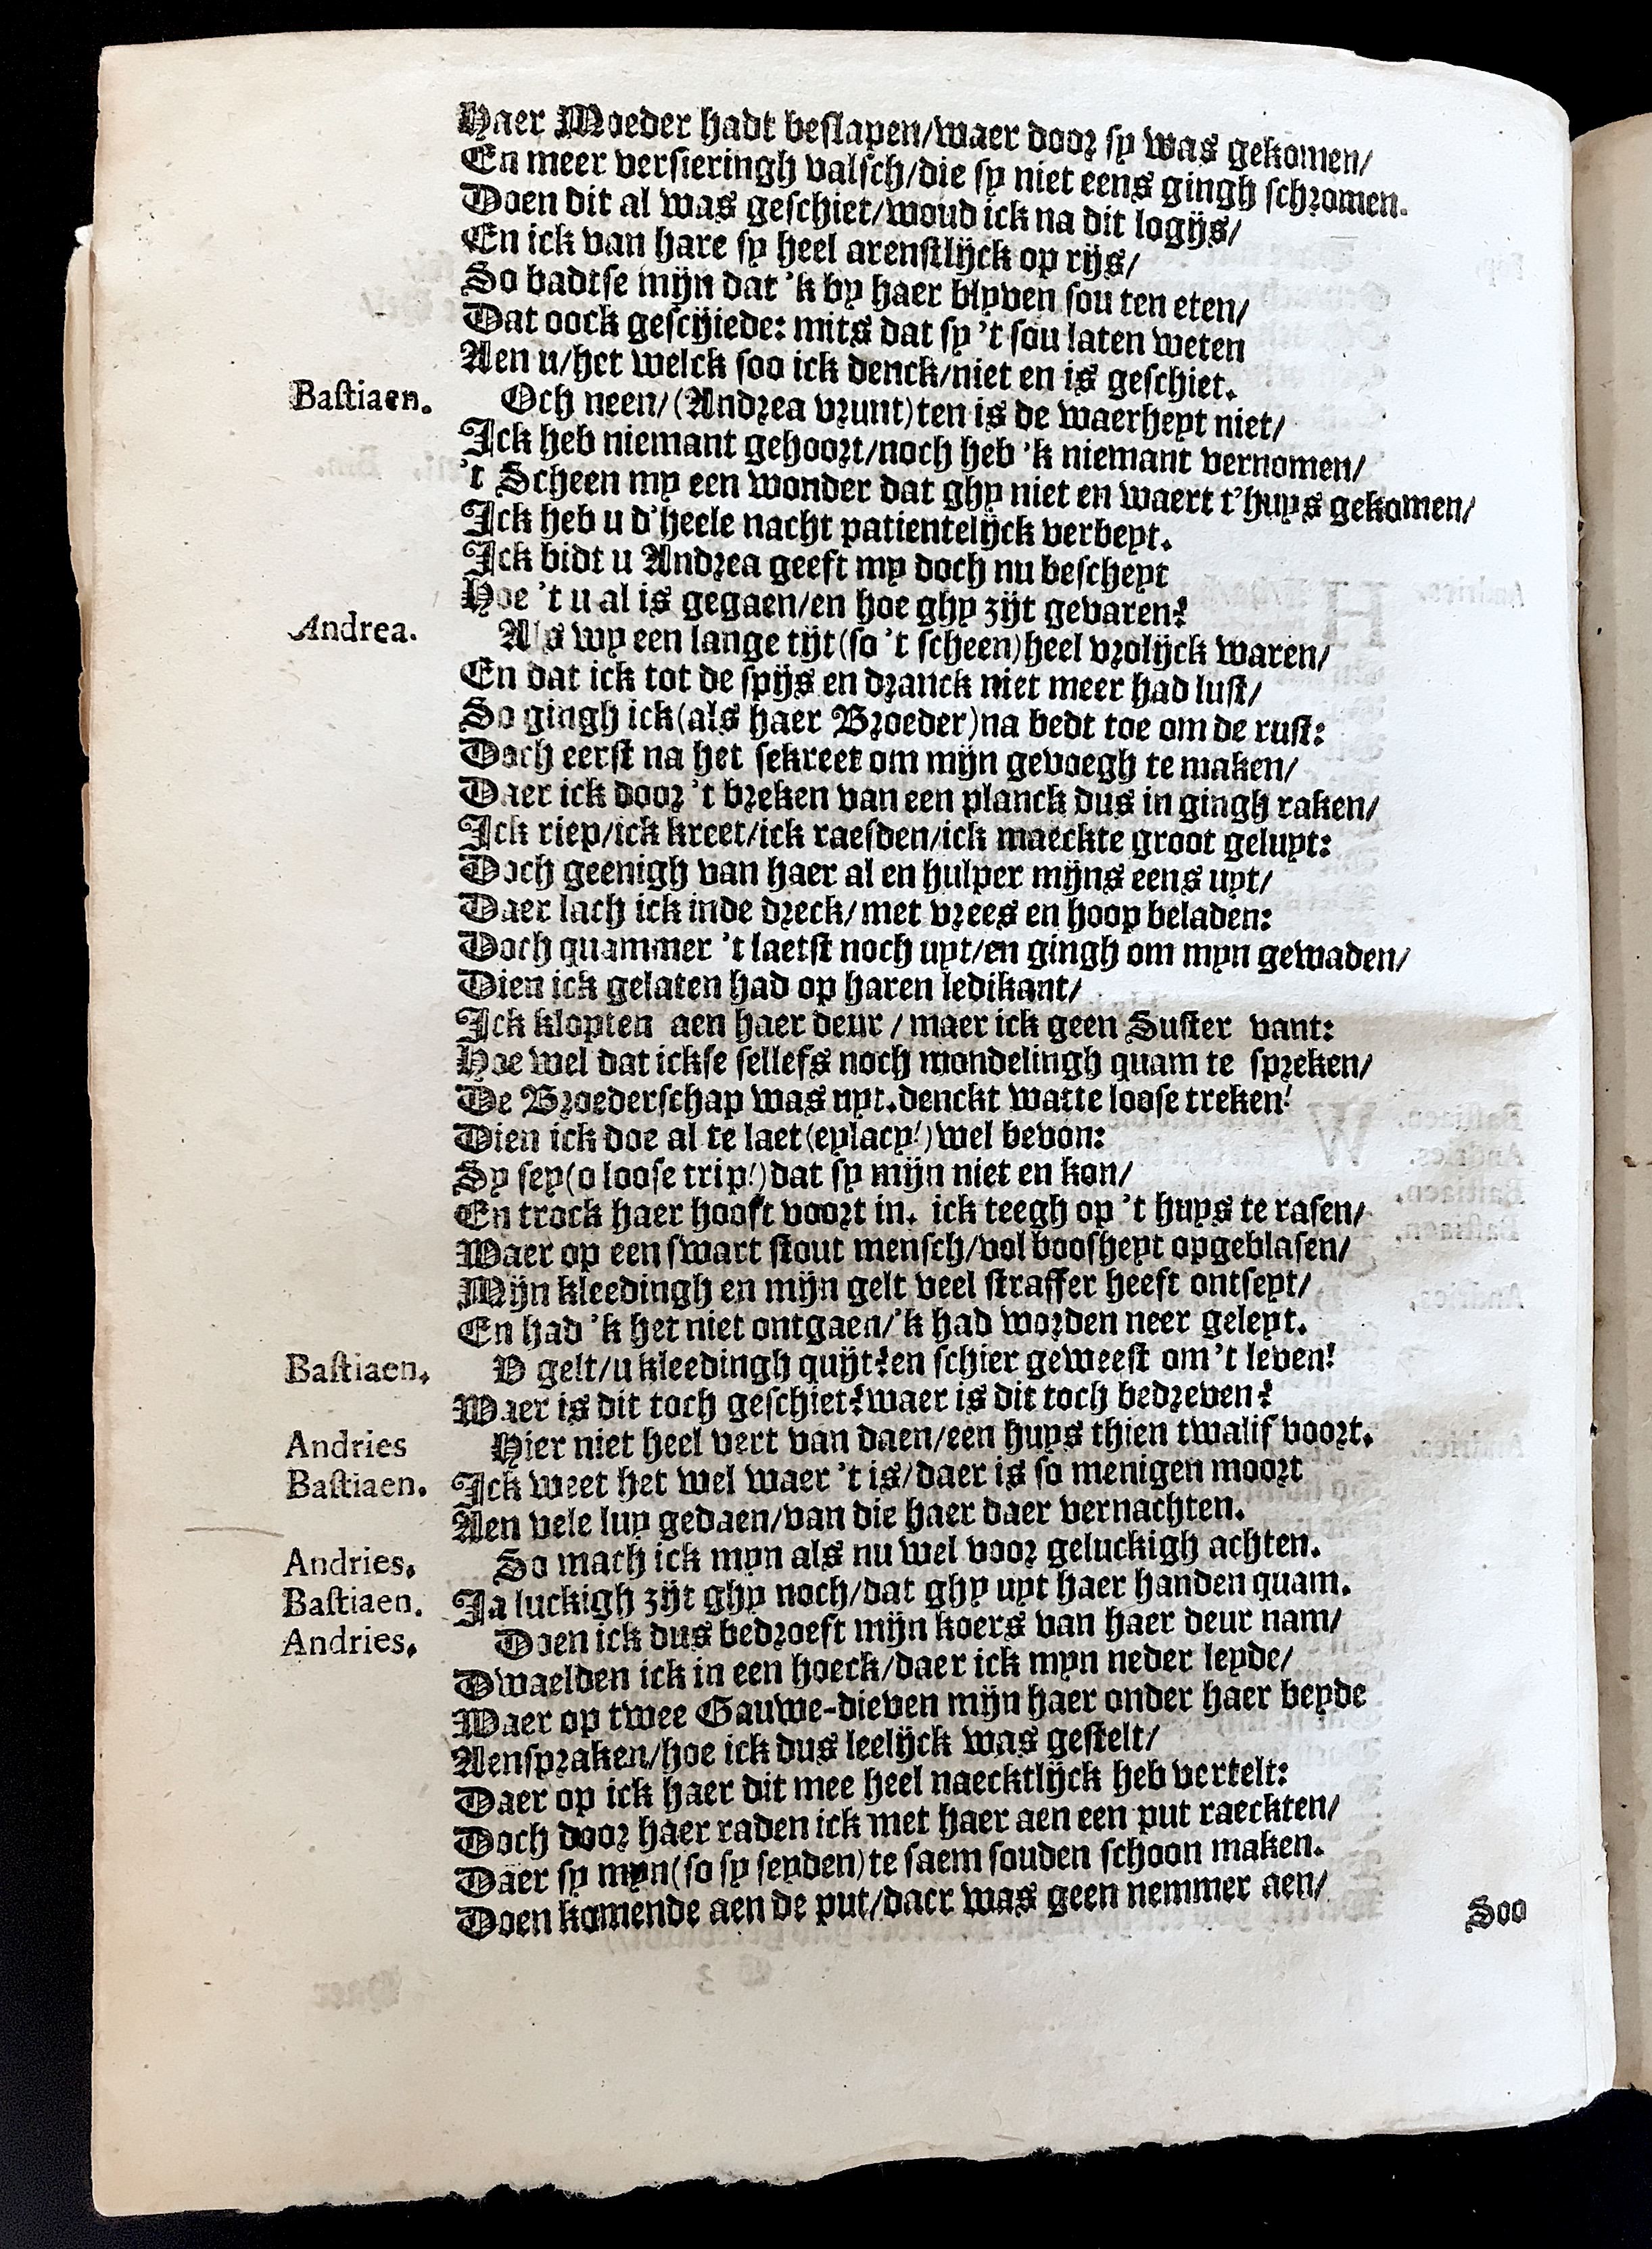 Haer Moeder hadt beslapen/waer door sy was gekomen/
En meer versieringh valsch/die sy niet eens gingh schromen.
Doen dit al was geschiet/woud ick na dit logijs/
En ick van hare sy heel arenstlijck op rijs/
So badtse mijn dat 'k by haer blyven sou ten eten/
Dat oock gescyiede: mits dat sy 't sou laten weten
Aen u/het welck soo ick denck/niet en is geschiet.
Bastiaen. Och neen/(Andrea vrunt)ten is de waerheyt niet/
Ick heb niemant gehoort/noch heb 'k niemant vernomen/
't Scheen my een wonder dat ghy niet en waert t'huys gekomen/
Ick heb u d'heele nacht patientelijck verbeyt.
Ick bidt u Andrea geeft my doch nu bescheyt
Hoe 't u al is gegaen/en hoe ghy zijt gevaren?
Andrea. Als wy een lange tijt(so 't scheen)heel vrolijck waren/
En dat ick tot de spijs en dranck niet meer had lust/
So gingh ick(als haer Broeder)na bedt toe om de rust:
Doch eerst na het sekreet om mijn gevoegh te maken/
Daer ick door 't breken van een planck dus in gingh raken/
Ick riep/ick kreet/ick raesden/ick maeckte groot geluyt:
Doch geenigh van haer al en hulper mijns eens uyt/
Daer lach ick inde dreck/met vrees en hoop beladen:
Doch quammer 't laetst noch uyt/en gingh om myn gewaden/
Dien ick gelaten had op haren ledikant/
Ick klopten aen haer deur / maer ick geen Suster vant:
Hoe wel dat ickse sellefs noch mondelingh quam te spreken/
De Broederschap was uyt.denckt watte loose treken!
Dien ick doe al te laet(eylacy!)wel bevon:
Sy sey(o loose trip!)dat sy mijn niet en kon/
En trock haer hooft voort in. ick teegh op 't huys te rasen/
Waer op een swart stout mensch/vol boosheyt opgeblasen/
Mijn kleedingh en mijn gelt veel straffer heeft ontseyt/
En had 'k het niet ontgaen/'k had worden neer geleyt.
Bastiaen. V gelt/u kleedingh quijt?en schier geweest om 't leven!
Waer is dit toch geschiet?waer is dit toch bedreven?
Andries Hier niet heel vert van daen/een huys thien twalif voort.
Bastiaen. Ick weet het wel waer 't is/daer is so menigen moort
Aen vele luy gedaen/van die haer daer vernachten.
Andries. So mach ick myn als nu wel voor geluckigh achten.
Bastiaen. Ja luckigh zijt ghy noch/dat ghy uyt haer handen quam.
Andries. Doen ick dus bedroeft mijn koers van haer deur nam/
Dwaelden ick in een hoeck/daer ick myn neder leyde/
Waer op twee Gauwe-dieven mijn haer onder haer beyde
Aenspraken/hoe ick dus leelijck was gestelt/
Daer op ick haer dit mee heel naecktlijck heb vertelt:
Doch door haer raden ick met haer aen een put raeckten/
Daer sy myn(so sy seyden)te saem souden schoon maken.
Doen komende aen de put/daer was geen nemmer aen/
Soo